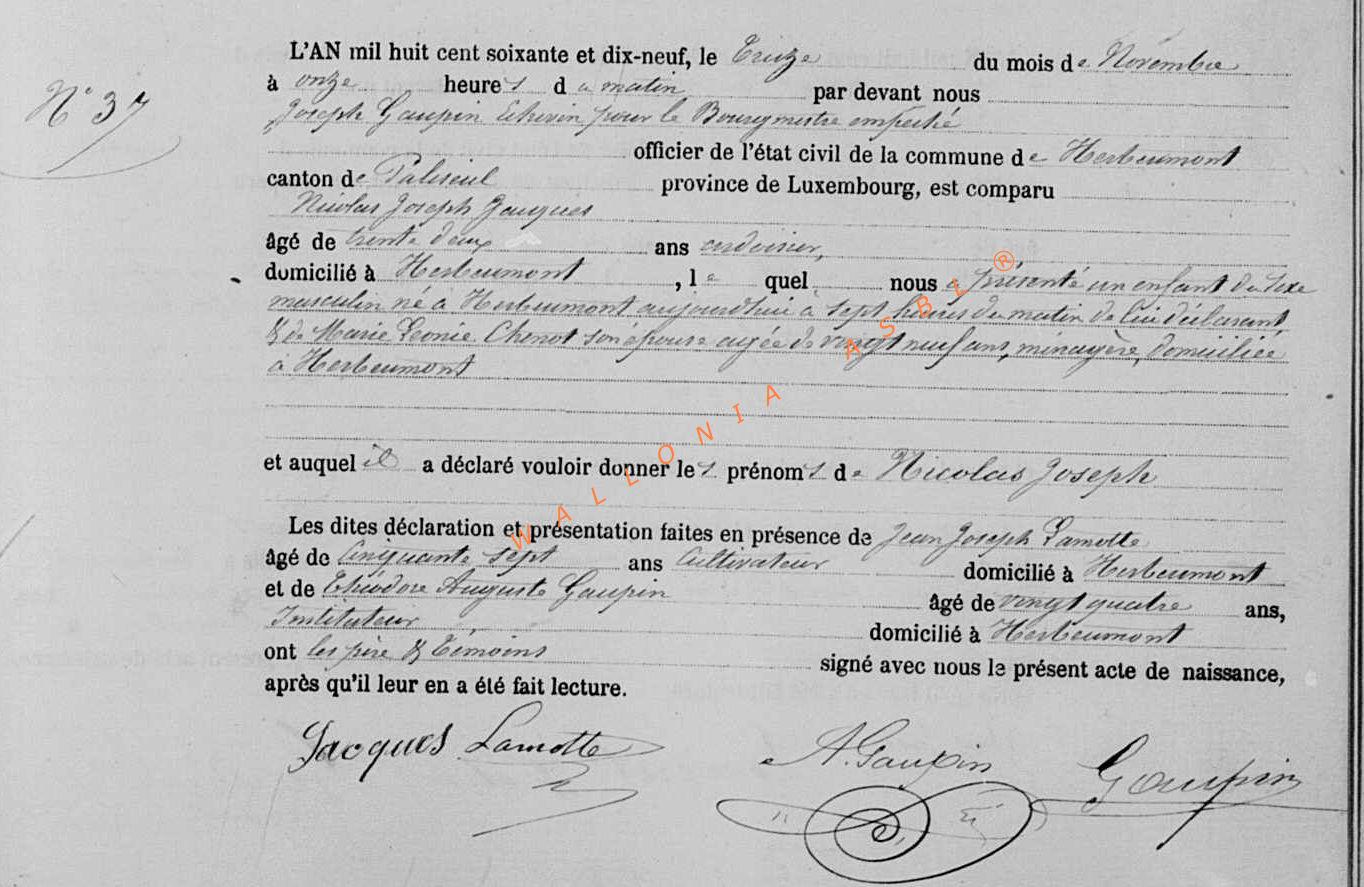 N° 37
L'AN mil huit cent soixante et dix-neuf, le Treize du mois de Novembre
à onze heures du matin par devant nous
Joseph Gaupin Echevin pour le Bourgmestre empêché
officier de l'état civil de la commune de Herbeumont
canton de Paliseul province de Luxembourg, est comparu
Nicolas Joseph Jacques
âgé de trente deux ans ardoisier,
domicilié à Herbeumont, le quel nous a présenté un enfant du sexe
masculin né à Herbeumont aujourd'hui à sept heures du matin de lui déclarant
& de Marie Leonie Chenot son épouse agée de vingt neuf ans, ménagère, domiciliée
à Herbeumont
et auquel il a déclaré vouloir donner les prénoms de Nicolas Joseph
Les dites déclaration et présentation faites en présence de Jean Joseph Lamotte
âgé de Cinquante sept ans Cultivateur domicilié à Herbeumont
et de Théodore Auguste Gaupin âgé de vingt quatre ans,
Instituteur domicilié à Herbeumont
ont les père & Témoins signé avec nous le présent acte de naissance,
après qu'il leur en a été fait lecture.
Jacques Lamotte A. Gaupin Gaupin
WALLONIA ASBL ®